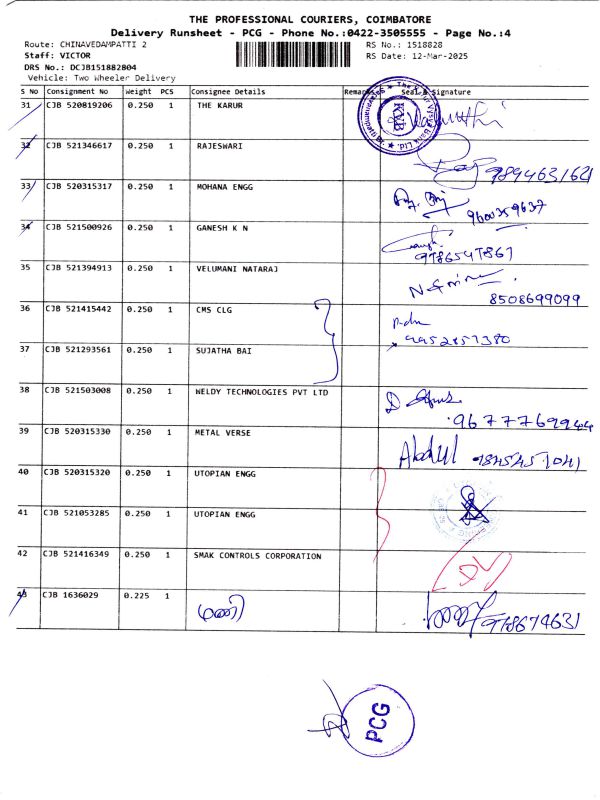 THE PROFESSIONAL COURIERS, COIMBATORE
Delivery Runsheet - PCG - Phone No.:0422-3505555 - Page No.:4
Route: CHINAVEDAMPATTI 2
RS No.: 1518828
Staff: VICTOR
RS Date: 12-Mar-2025
DRS No.: DCJB151882804
Vehicle: Two Wheeler Delivery
S No Consignment No Weight PCS Consignee Details Remarks Seal & Signature
31 CJB 520819206 0.250 1 THE KARUR
KVB
32 CJB 521346617 0.250 1 RAJESWARI
9894631621
33 CJB 520315317 0.250 1 MOHANA ENGG
9600359637
34 CJB 521500926 0.250 1 GANESH K N
35 CJB 521394913 0.250 1 VELUMANI NATARAJ
8508699099
36 CJB 521415442 0.250 1 CMS CLG
37 CJB 521293561 0.250 1 SUJATHA BAI
38 CJB 521503008 0.250 1 WELDY TECHNOLOGIES PVT LTD
9677769944
39 CJB 520315330 0.250 1 METAL VERSE
Abdul
40 CJB 520315320 0.250 1 UTOPIAN ENGG
41 CJB 521053285 0.250 1 UTOPIAN ENGG
42 CJB 521416349 0.250 1 SMAK CONTROLS CORPORATION
43 CJB 1636029 0.225 1 மணி
PCG